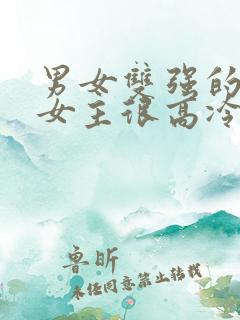 男女雙强的
女王很高冷
鲁昕
未经同意禁止转载